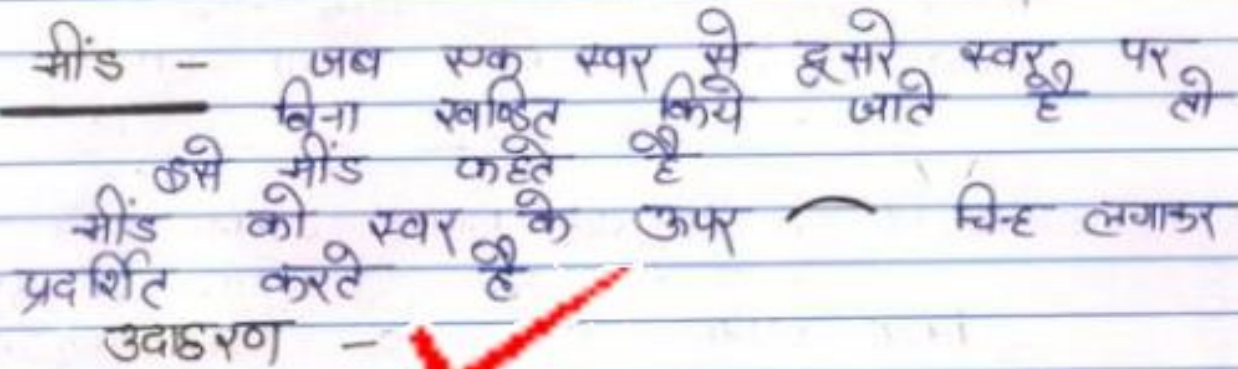 मींड - जब एक स्वर से दूसरे स्वर पर
बिना खण्डित किये जाते है तो
उसे मींड कहते है
मींड को स्वर के ऊपर ⌒ चिन्ह लगाकर
प्रदर्शित करते है
उदाहरण -